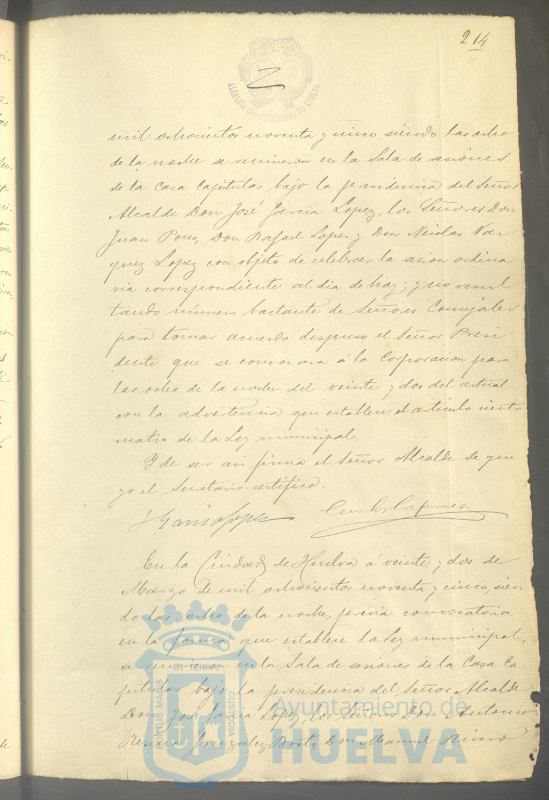 214
ALCALDIA CONSTITUCIONAL DE HUELVA
mil ochocientos noventa y cinco siendo las ocho
de la noche se reunieron en la Sala de sesiones
de la Casa Capitular bajo la presidencia del Señor
Alcalde Don José Garcia Lopez, los Señores Don
Juan Pons, Don Rafael Lopez y Don Nicolas Vaz
quez Lopez con objeto de celebrar la sesion ordina
ria correspondiente al dia de hoy; y no resul
tando número bastante de Señores Concejales
para tomar acuerdo dispuso el Señor Presi
dente que se convocara á la Corporacion para
las ocho de la noche del veinte y dos del actual
con la advertencia que establece el artículo ciento
cuatro de la Ley municipal.
Y de ser asi firma el Señor Alcalde de que
yo el Secretario certifico.
J Garcia Lopez
En la Ciudad de Huelva á veinte y dos de
Marzo de mil ochocientos noventa y cinco, sien
do las ocho de la noche, previa convocatoria
en la forma que establece la Ley municipal,
se reunieron en la Sala de sesiones de la Casa Ca
pitular bajo la presidencia del Señor Alcalde
Don José Garcia Lopez, los Señores Don Antonio
Gonzalez Don Manuel Rivero
PORTUS MARIS ET TERRAE CUSTODIA
Ayuntamiento de
HUELVA